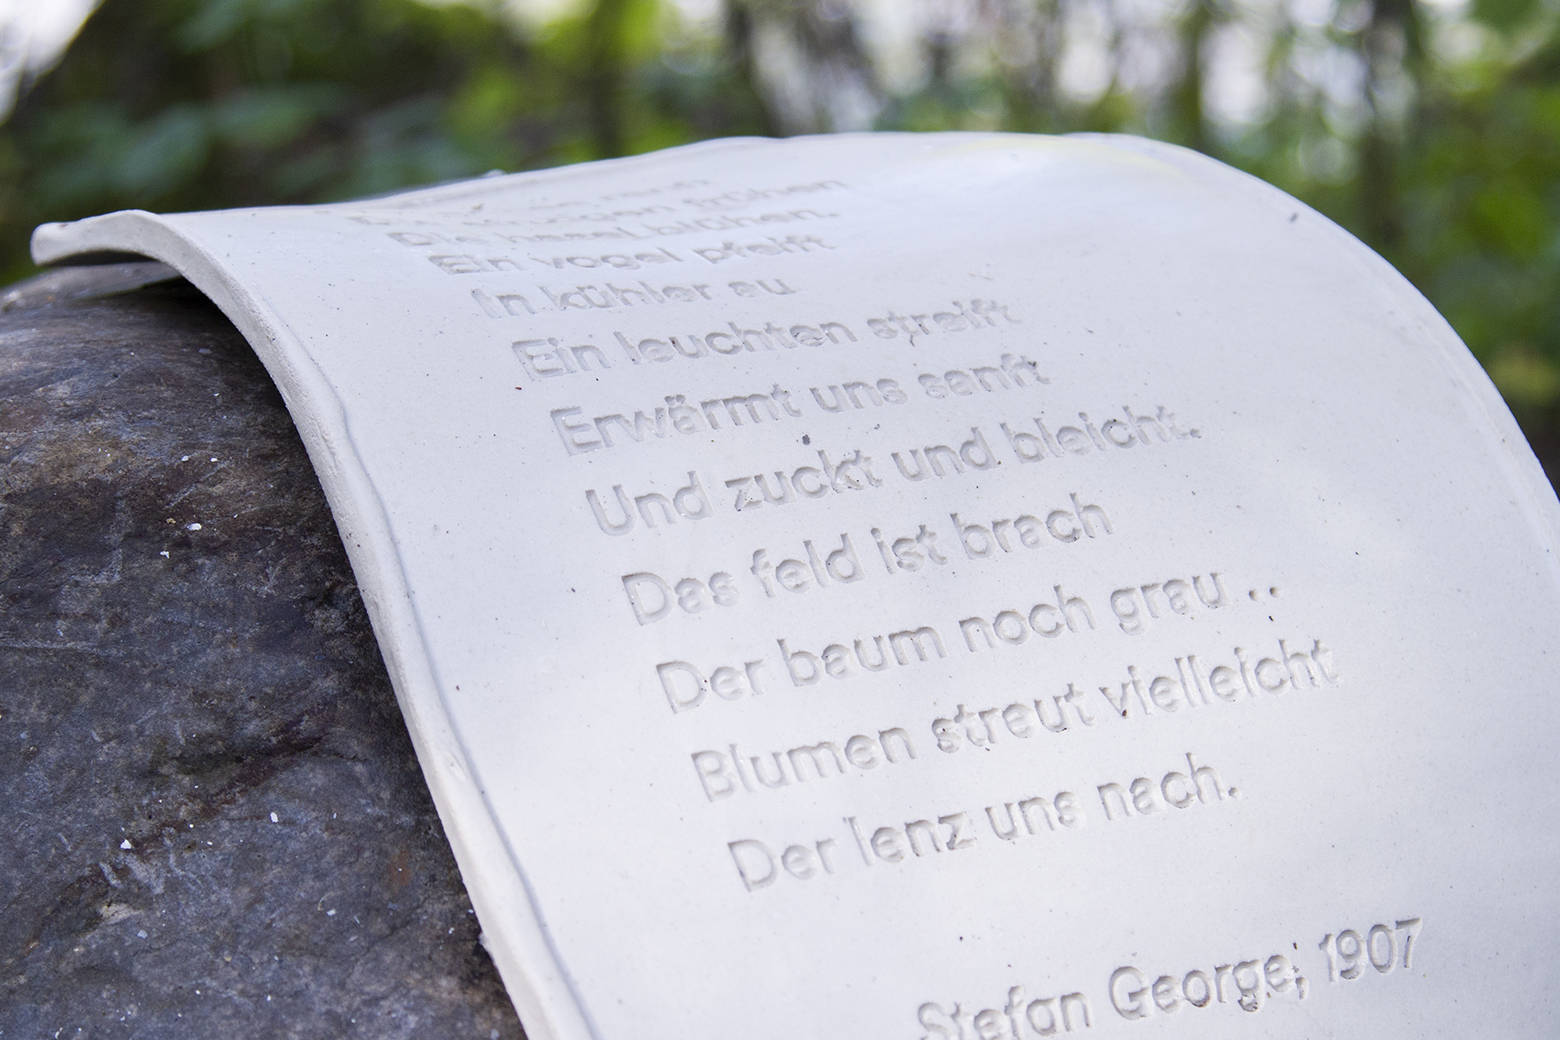 Die hasel blühen.
Ein vogel pfeift
In kühler au
Ein leuchten streift
Erwärmt uns sanft
Und zuckt und bleicht.
Das feld ist brach
Der baum noch grau ..
Blumen streut vielleicht
Der lenz uns nach.
Stefan George, 1907